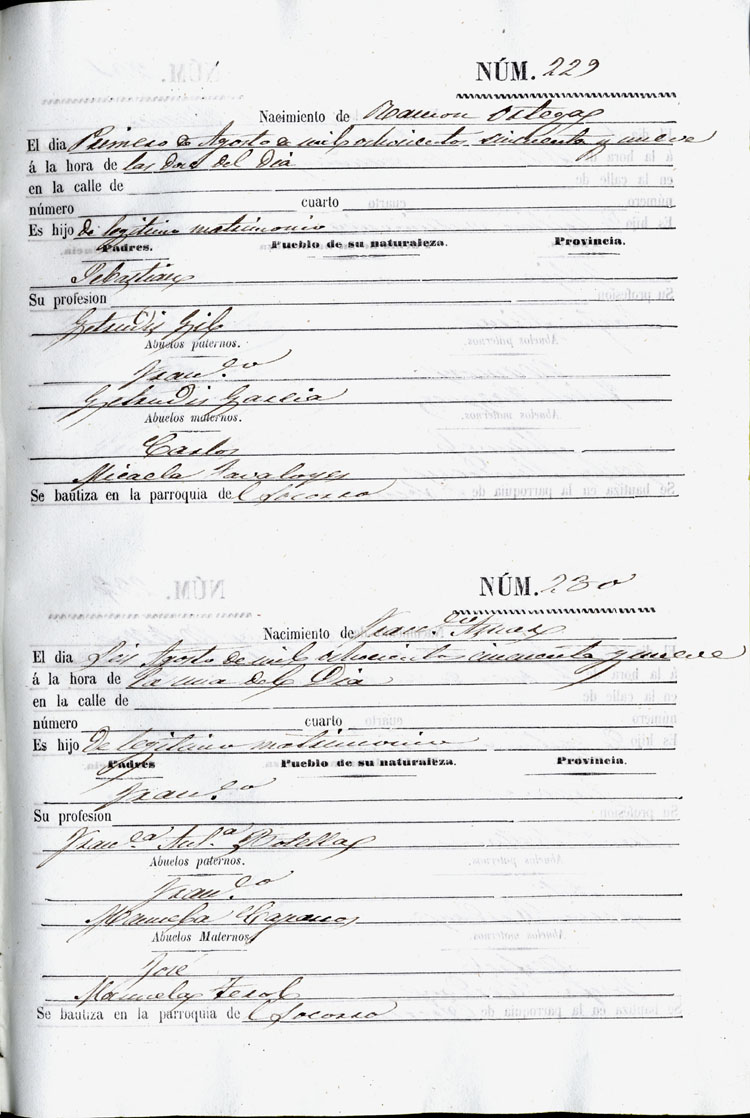 NÚM. 229
Nacimiento de Ramon Ortega
El dia Primero de Agosto de mil ochocientos sincuenta y nueve
á la hora de las dos del Dia
en la calle de
número cuarto
Es hijo de legitimo matrimonio
Padres. Pueblo de su naturaleza. Provincia.
Sebastian
Su profesion
Getrudis Gil
Abuelos paternos.
Fran.co
Getrudis Garcia
Abuelos maternos.
Carlos
Micaela
Se bautiza en la parroquia de l Socorro
NÚM. 230
Nacimiento de Fran.co
El dia Seis Agosto de mil ochocientos cincuenta y nueve
á la hora de La una del Dia
en la calle de
número cuarto
Es hijo de legitimo matrimonio
Padres Pueblo de su naturaleza. Provincia.
Fran.co
Su profesion
Fran.ca Ant.a
Abuelos paternos.
Fran.co
Manuela
Abuelos Maternos
José
Manuela
Se bautiza en la parroquia de l Socorro